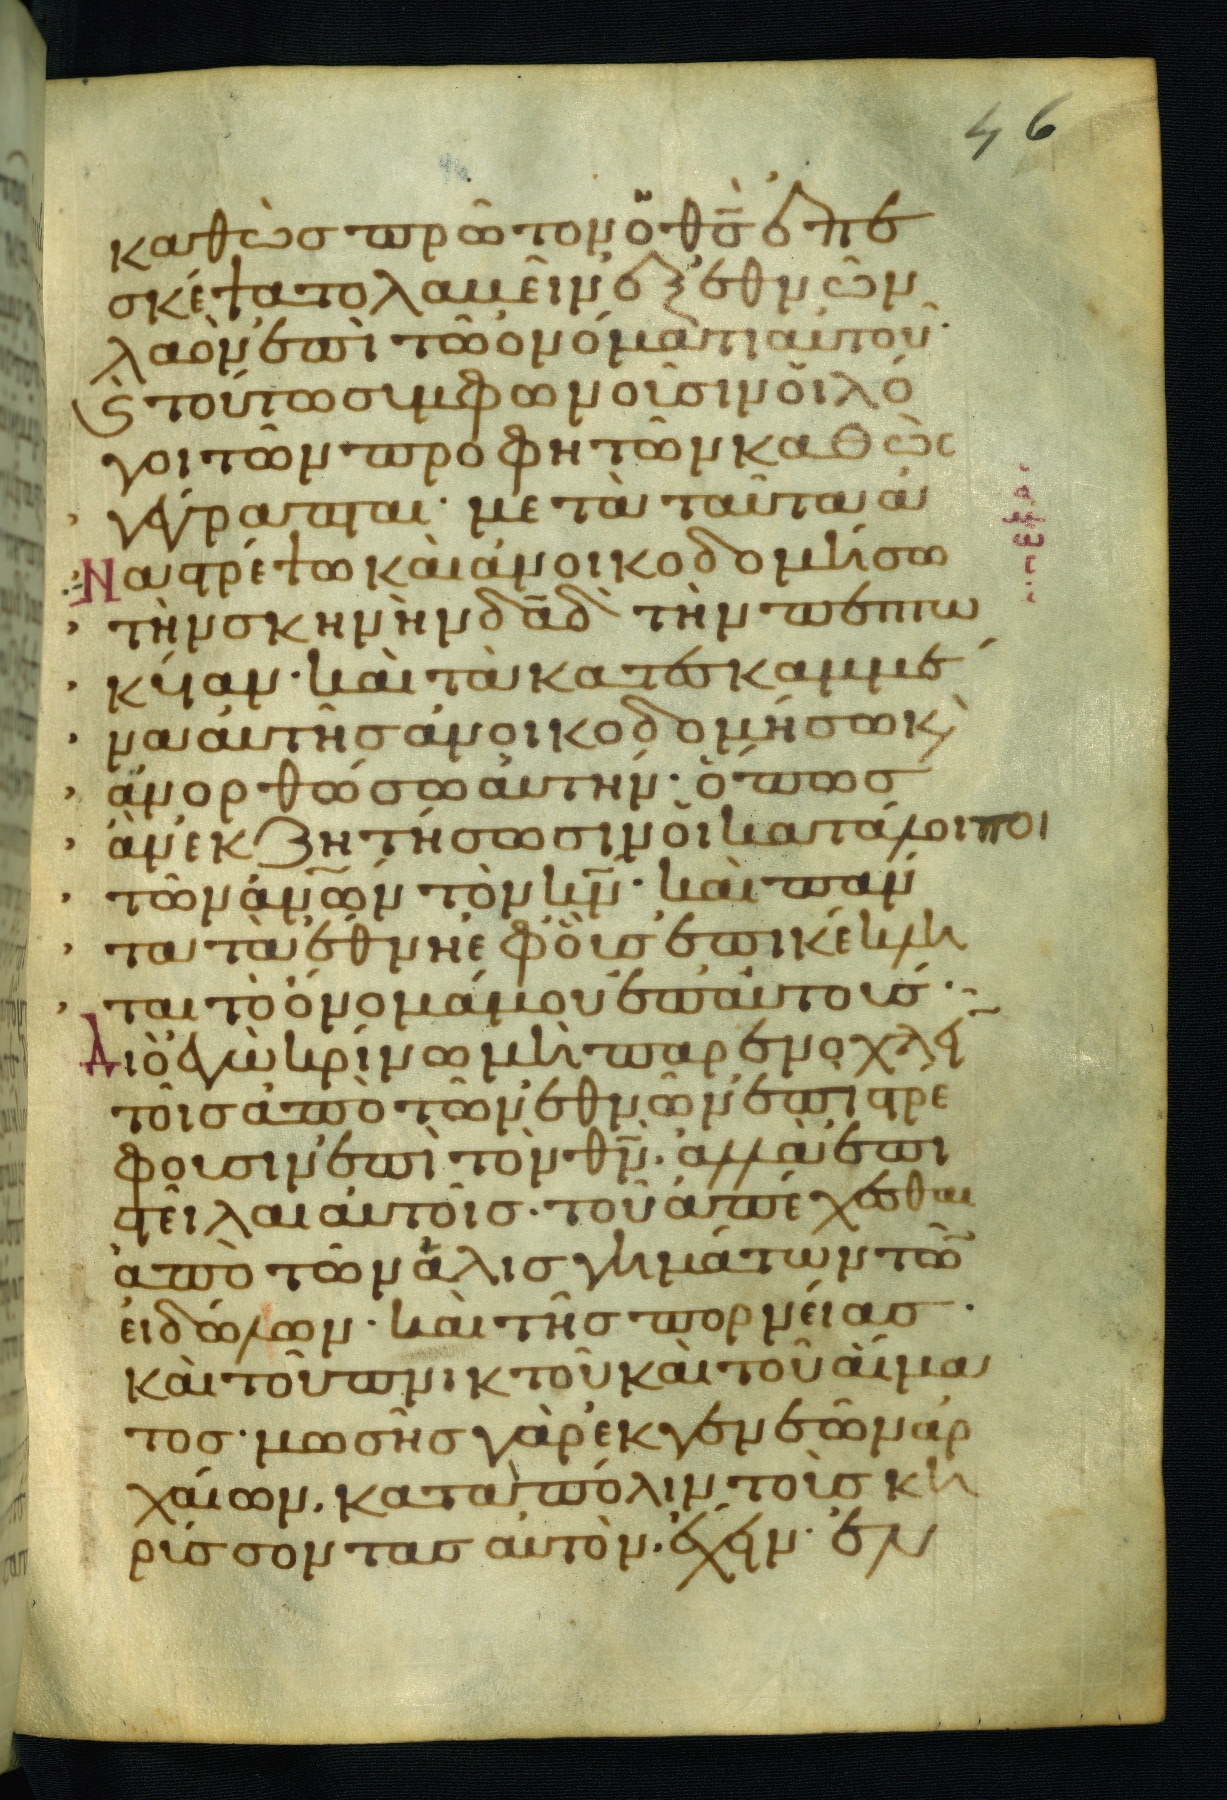 46
καθὼσ πρῶτον ὁ θσ̄ ἐπε
σκέψατο λαβεῖν ἐξ ἐθνῶν
λαὸν ἐπὶ τῶ ὀνόματι αὐτοῦ·
ϛ τούτω συμφωνοῦσιν οἱ λό
γοι τῶν προφητῶν καθὼσ
γέγραπται· μετὰ ταῦτα ἀ
Ναστρέψω καὶ ἀνοικοδομήσω
τὴν σκηνὴν δᾱδ̀ τὴν πεπτω
κυῖαν· καὶ τὰ κατεσκαμμέ
να αὐτῆσ ἀνοικοδομήσω κ̀
ἀνορθώσω αὐτήν· ὅπωσ
ἂν ἐκζητήσωσιν οἱ κατάλοιποι
τῶν ἀνω̄ν τὸν κν̄· καὶ πάν
τα τὰ ἔθνη ἐφ οὓσ ἐπικέκλη
ται τὸ ὄνομά μου ἐπ αὐτούσ·~
Διὸ ἐγὼ κρίνω μὴ παρενοχλεῖ
τοῖσ ἀπὸ τῶν ἐθνῶν ἐπιστρέ
φουσιν ἐπὶ τὸν θν̄· ἀλλὰ ἐπι
στεῖλαι αὐτοῖσ· τοῦ ἀπέχεσθαι
ἀπὸ τῶν ἀλισγημάτων τῶ̄
εἰδώλων· καὶ τῆσ πορνείασ·
καὶ τοῦ πνικτοῦ καὶ τοῦ αἵμα
τοσ· μωσῆσ γὰρ ἐκ γενεῶν ἀρ
χαίων, κατὰ πόλιν τοὺσ κη
ρύσσοντασ αὐτὸν· ἔχει· ἐν